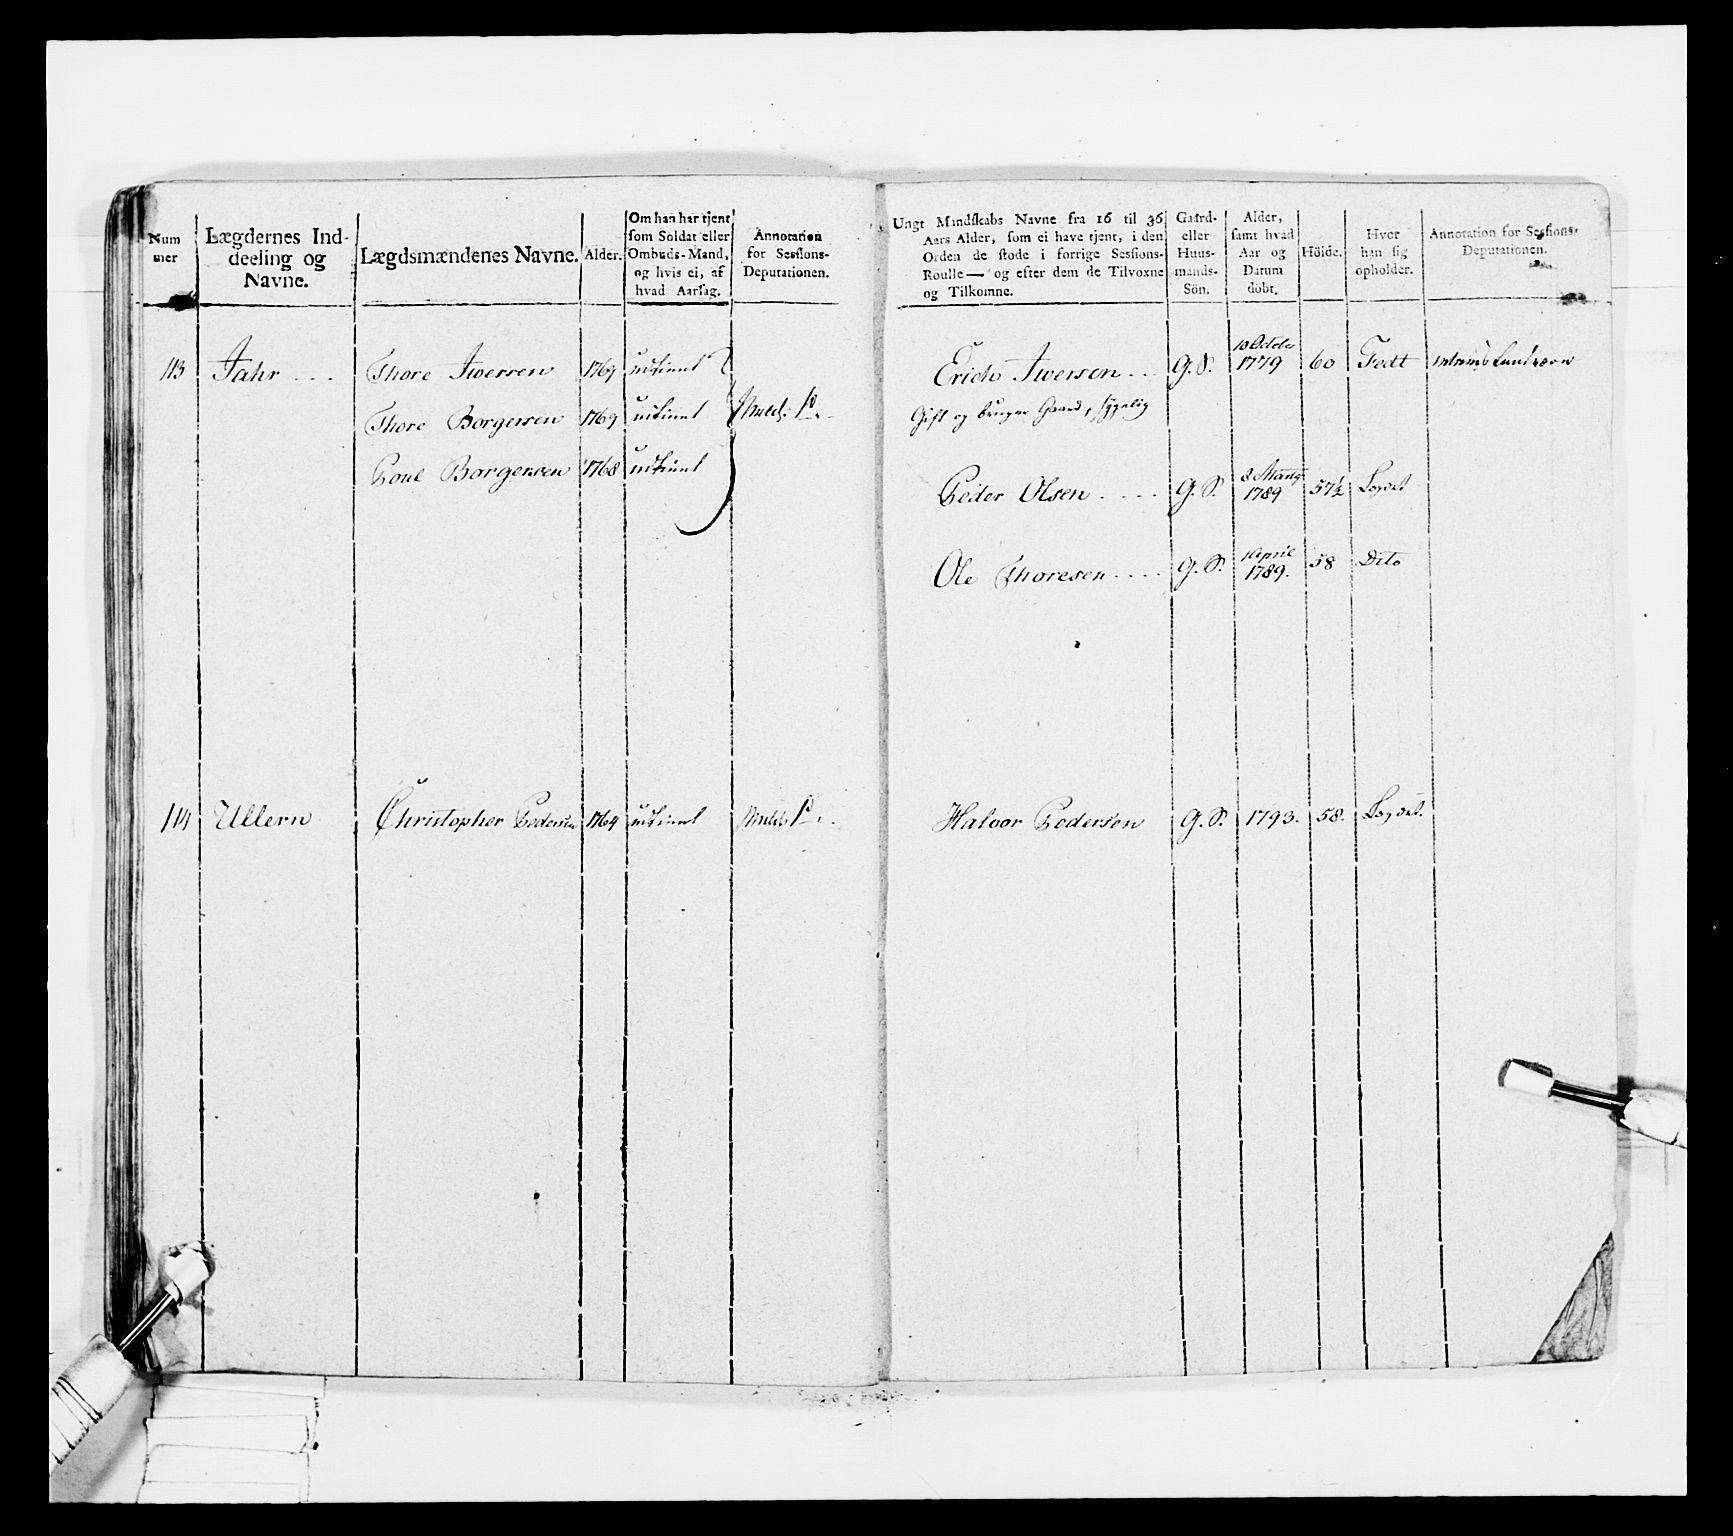 Num mer
Lægdernes Ind-
deeling og
Navne.
Lægdsmændenes Navne.
Alder.
Om han har tjent
som Soldat eller
Ombuds-Mand,
og hvis ei, af
hvad Aarsag.
Annotation
for Sessions-
Deputationen.
Ungt Mandskabs Navne fra 16 til 36
Aars Alder, som ei have tjent, i den
Orden de stode i forrige Sessions-
Roulle— og efter dem de Tilvoxne
og Tilkomne.
Gaard-
eller
Huus-
mands-
Sön.
Alder,
samt hvad
Aar og
Datum
döbt.
Höide.
Hvor
han sig
opholder.
Annotation for Sessions-
Deputationen.
113 Jahr Thore Iversen 1769 udtient
Thore Borgersen 1769 udtient
Poul Borgersen 1768 udtient
Erich Iversen G. S. 10 Octobr 1779 60 Fedt
Gift og bruger Gaard, sygelig
Peder Olsen G. S. 8 Marty 1789 57½
Ole Thoresen G. S. 1 April 1789. 58 Dito
114 Ullern Christopher Pedersen 1764 udtient
Halvor Pedersen G. S. 1793. 58.